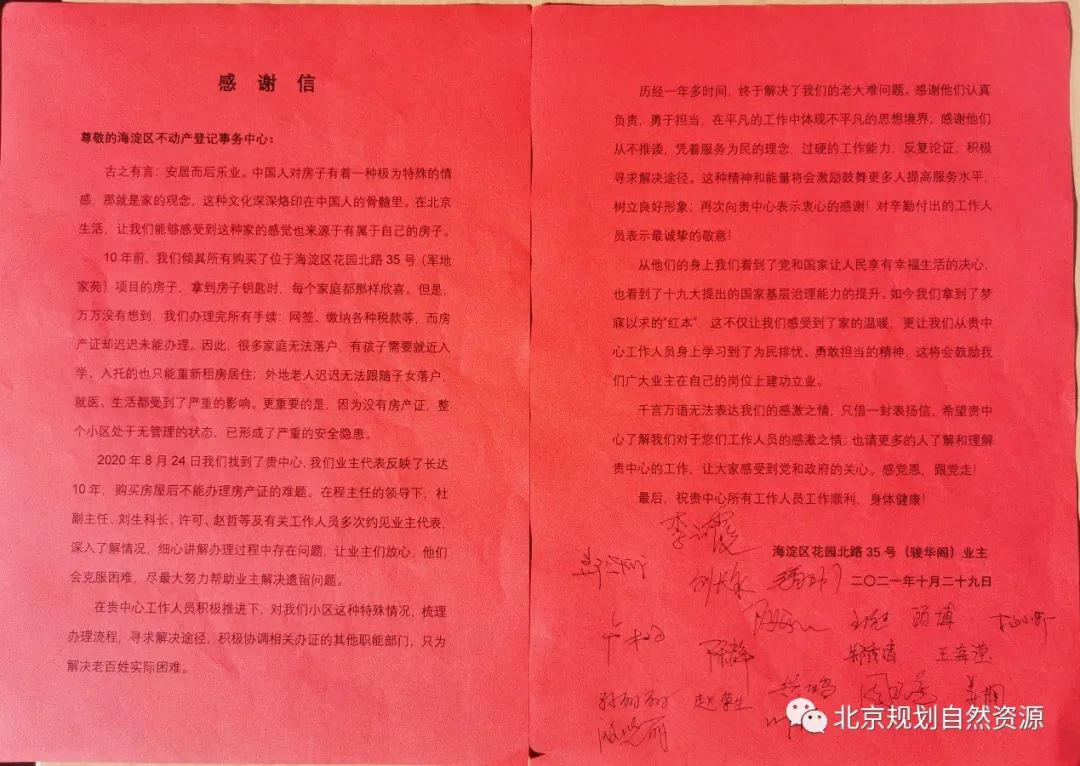 感 谢 信
尊敬的海淀区不动产登记事务中心：
古之有言：安居而后乐业。中国人对房子有着一种极为特殊的情
感，那就是家的观念，这种文化深深烙印在中国人的骨髓里。在北京
生活，让我们能够感受到这种家的感觉也来源于有属于自己的房子。
10年前，我们倾其所有购买了位于海淀区花园北路35号（军地
家苑）项目的房子，拿到房子钥匙时，每个家庭都那样欣喜。但是，
万万没有想到，我们办理完所有手续：网签、缴纳各种税款等，而房
产证却迟迟未能办理。因此，很多家庭无法落户，有孩子需要就近入
学、入托的也只能重新租房居住；外地老人迟迟无法跟随子女落户，
就医、生活都受到了严重的影响。更重要的是，因为没有房产证，整
个小区处于无管理的状态，已形成了严重的安全隐患。
2020年8月24日我们找到了贵中心，我们业主代表反映了长达
10年，购买房屋后不能办理房产证的难题。在程主任的领导下，杜
副主任、刘生科长、许可、赵哲等及有关工作人员多次约见业主代表，
深入了解情况，细心讲解办理过程中存在问题，让业主们放心，他们
会克服困难，尽最大努力帮助业主解决遗留问题。
在贵中心工作人员积极推进下，对我们小区这种特殊情况，梳理
办理流程，寻求解决途径，积极协调相关办证的其他职能部门，只为
解决老百姓实际困难。
历经一年多时间，终于解决了我们的老大难问题。感谢他们认真
负责，勇于担当，在平凡的工作中体现不平凡的思想境界；感谢他们
从不推诿，凭着服务为民的理念，过硬的工作能力，反复论证，积极
寻求解决途径。这种精神和能量将会激励鼓舞更多人提高服务水平，
树立良好形象；再次向贵中心表示衷心的感谢！对辛勤付出的工作人
员表示最诚挚的敬意！
从他们的身上我们看到了党和国家让人民享有幸福生活的决心，
也看到了十九大提出的国家基层治理能力的提升。如今我们拿到了梦
寐以求的“红本”，这不仅让我们感受到了家的温暖，更让我们从贵中
心工作人员身上学习到了为民排忧、勇敢担当的精神，这将会鼓励我
们广大业主在自己的岗位上建功立业。
千言万语无法表达我们的感激之情，只借一封表扬信，希望贵中
心了解我们对于您们工作人员的感激之情；也请更多的人了解和理解
贵中心的工作，让大家感受到党和政府的关心。感党恩，跟党走！
最后，祝贵中心所有工作人员工作顺利，身体健康！
海淀区花园北路35号（骏华阁）业主
二〇二一年十月二十九日
陈静
王奔滢
北京规划自然资源